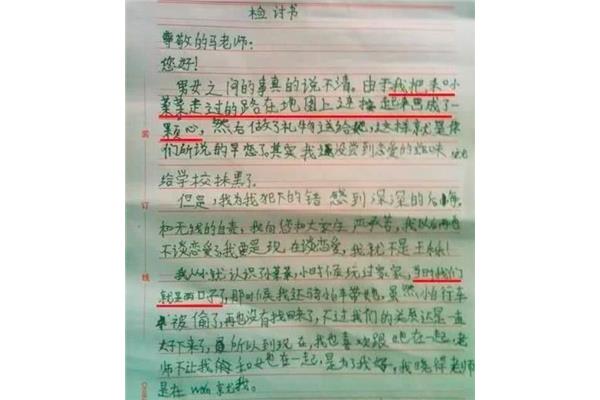 检讨书
尊敬的马老师：
您好！
男女之间的事真的说不清。由于我把和小
某某走过的路在地图上连接起来画成了一
颗心，然后做了礼物送给他，这样就是你
们所说的早恋了。其实我还没尝到恋爱的滋味
给学校抹黑了。
但是，我为我犯下的错感到深深的后悔
和无线的自责，我向您和大家庄严承若，我以后再也
不谈恋爱了，我要是现在谈恋爱，我就不是王
我从小就认识孙某某，小时候玩过家家，当时我们
就是两口子了，那时候我还骑小自行车带他，虽然小自行车
被偷了，再也没有找回来了，不过我们的关系还是一直
好下来了，所以到现在，我也喜欢跟他在一起，老
师不让我和女也在一起，是为了我好，我晓得老师
是在 wan 救我。
装
订
线